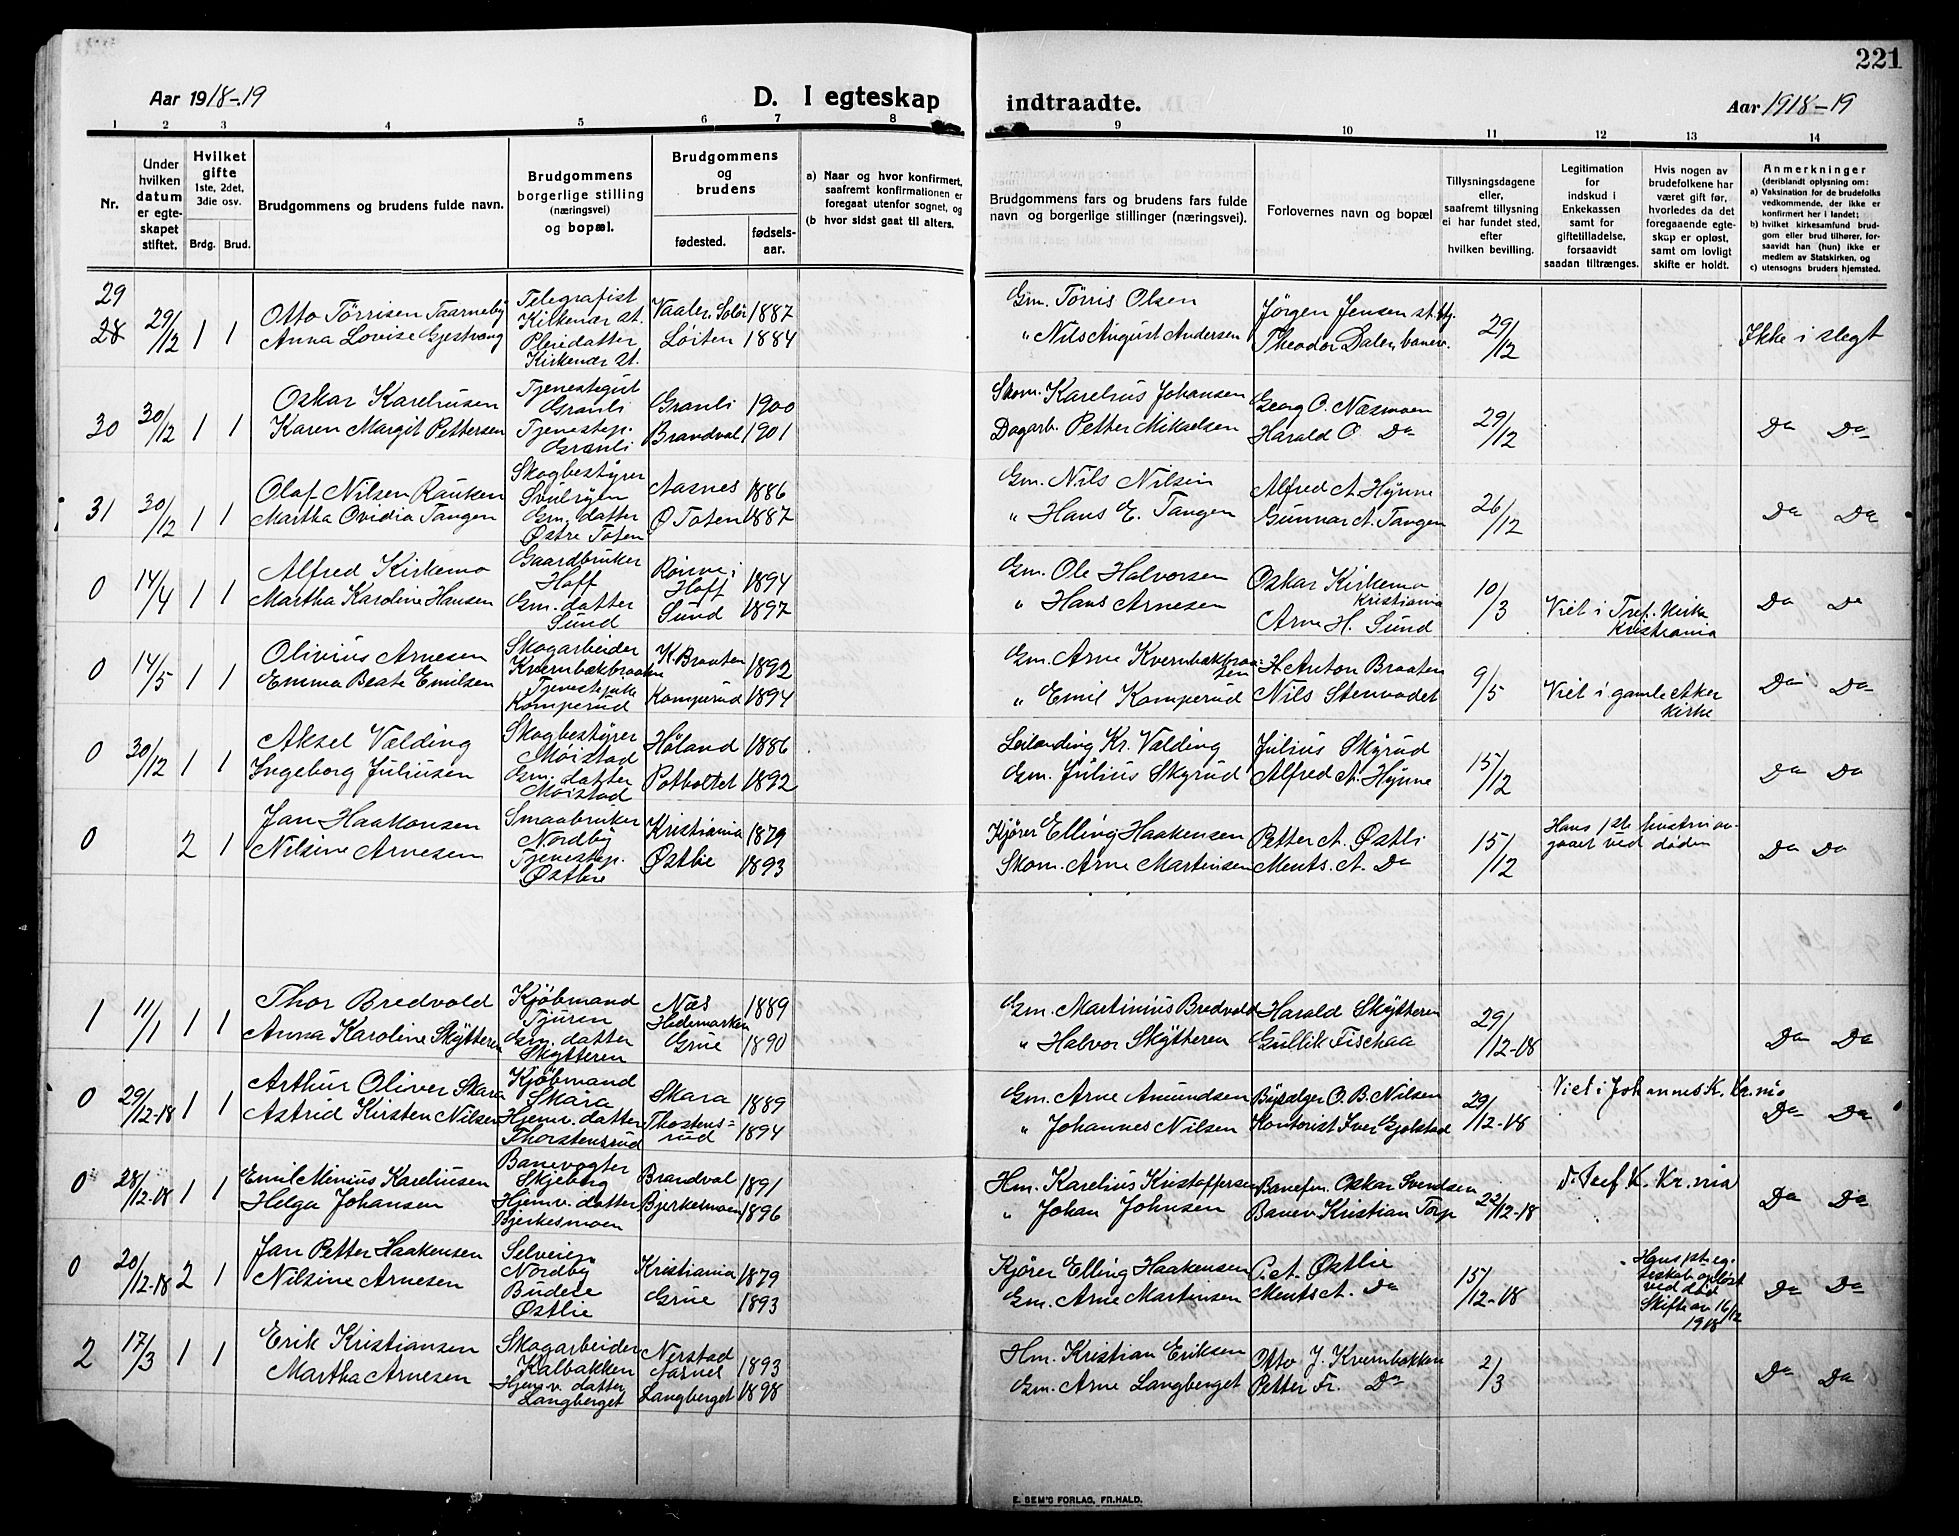 221
Aar 1918-19
D. I egteskap indtraadte.
Aar 1918-19
1 2 3 4 5 6 7 8 9 10 11 12 13 14
Nr.
Under hvilken datum er egteskapet stiftet.
Hvilket gifte 1ste, 2det, 3die osv.
Brdg. Brud.
Brudgommens og brudens fulde navn.
Brudgommens borgerlige stilling (næringsvei) og bopæl.
Brudgommens og brudens
fødested.
fødsels-aar.
a) Naar og hvor konfirmert, saafremt konfirmationen er foregaat utenfor sognet, og
(b hvor sidst gaat til alters.
Brudgommens fars og brudens fars fulde navn og borgerlige stillinger (næringsvei).
Forlovernes navn og bopæl
Tillysningsdagene eller, saafremt tillysning ei har fundet sted, efter hvilken bevilling.
Legitimation for indskud i Enkekassen samt for giftetilladelse, forsaavidt saadan tiltrænges.
Hvis nogen av brudefolkene har været gift før, hvorledes da det foregaaende egteskap er opløst, samt om lovligt skifte er holdt.
Anmerkninger (deriblandt oplysning om: a) Vaksination for de brudefolks vedkommende, der ikke er konfirmert her i landet; b) hvilket kirkesamfund brudgom eller brud tilhører, forsaavidt han (hun) ikke er medlem av Statskirken, og c) utensogns bruders hjemsted.
29
28 29/12 1 1 Otto Törrisen Taarneby Telegrafist Kirkenær st. Vaaler, Solør 1887 Gm. Törris Olsen Jörgen Jensen 29/12 Ikke i slegt
Anna Lovise Gjestvang Pleiedatter Kirkenær st. Löiten 1884 " Nils August Andersen Theodor Dalen, banev.
30 30/12 1 1 Oskar Kareliusen Tjenestegut Granli Granli 1900 Skom. Karelius Johansen Georg O. Næsmoen 29/12 Do Do
Karen Margit Pettersen Tjenestep. Granli Brandval 1901 Dagarb. Petter Mikaelsen Harald O. Do
31 30/12 1 1 Olaf Nilsen Rauken Skogbestyrer Svulrya Aasnes 1886 Gm. Nils Nilsen Alfred A. Hynne 26/12 Do Do
Martha Ovidia Tangen Gm. datter Östre Toten Ø Toten 1887 " Hans E. Tangen Gunnar A. Tangen
0 14/4 1 1 Alfred Kirkemo Gaardbruker Hoff Hoff 1894 Gm. Ole Halvorsen Oskar Kirkemo Kristiania 10/3 Viet i Tref. Kirke Kristiania Do Do
Martha Karoline Hansen Gm. datter Sund Sund 1897 " Hans Arnesen Arne H. Sund
0 14/5 1 1 Olivius Arnesen Skogarbeider Kvernbækbraaten K. Braaten 1892 Gm. Arne Kvernbækbraaten H. Anton Braaten 9/5 Viet i gamle Aker Kirke Do Do
Emma Beate Emilsen Tjenestepike Komperud Komperud 1894 " Emil Komperud Nils Stenvadet
0 30/12 1 1 Aksel Vælding Skogbestyrer Möistad Høland 1886 Leilænding Kr. Vælding Julius Skyrud 15/12 Do Do
Ingeborg Juliusen Gm. datter Möistad Potboltet 1892 Gm. Julius Skyrud Alfred A. Hynne
0 2 1 Jan Haakonsen Smaabruker Nordby Kristiania 1879 Kjörer Elling Haakensen Petter A. Østli 15/12 Hans 1ste hustru avgaaet ved döden Do Do
Nilsine Arnesen Tjenestep. Østlie Østlie 1893 Skom. Arne Martinsen Ments. A. Do
1 11/1 1 1 Thor Bredvold Kjöbmand Tjuren Næs Hedemarken 1889 Gm. Martinius Bredvold Harald Skytteren 29/12-18 Do Do
Anna Karoline Skytteren Gm. datter Skytteren Grue 1890 " Halvor Skytteren Gullik Fischaa
0 29/12-18 1 1 Arthur Oliver Skara Kjöbmand Skara Skara 1889 Gm. Arne Amundsen Bysælger O. B. Nilsen 29/12-18 Viet i Johannes K. Kr.nia Do Do
Astrid Kirsten Nilsen Hjemv. datter Thorstensrud Thostensrud 1894 " Johannes Nilsen Kontorist Iver Gjolstad
0 28/12-18 1 1 Emil Menius Kareliusen Banevogter Skjeberg Brandval 1891 Hm. Karelius Kristoffersen Banefm. Oskar Svendsen 22/12-18 Tref K. Kr.nia Do Do
Helga Johansen Hjemv. datter Bjerkesmoen Bjerkesmoen 1896 " Johan Johnsen Banev Kristian Torp
0 20/12-18 2 1 Jan Petter Haakensen Selveier Nordby Kristiania 1879 Kjörer Elling Haakensen P. A. Østlie 15/12-18 Hans 1st. egteskab oplöst ved död Skifte av 16/12 1918 Do Do
Nilsine Arnesen Budeie Østlie Grue 1893 Gm. Arne Martinsen Ments A. Do
2 17/3 1 1 Erik Kristiansen Skogarbeider Kalbakken Nerstad 1893 Hm. Kristian Eriksen Otto J. Kvernbakken 2/3 Do Do
Martha Arnesen Hjemv. datter Langberget Langberget 1898 Gm. Arne Langberget Petter Fr. Do
E. SEM'S FORLAG, FR.HALD.